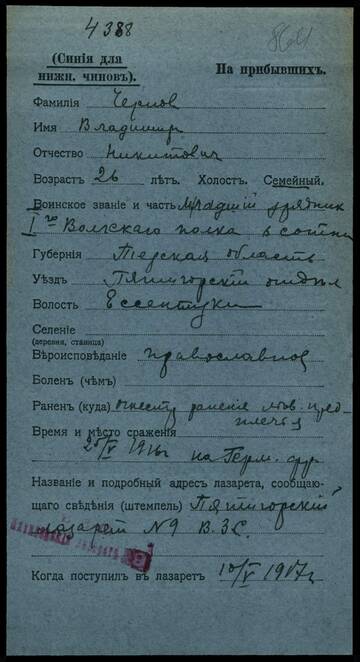 4388
(Синія для
нижн. чиновъ).
На прибывшихъ.
Фамилія Чернов
Имя Владимир
Отчество Никитович
Возрастъ 26 лѣтъ. Холост. Семейный.
Воинское званіе и часть Младший урядник
I го Волгскаго полка 2 сотни
Губернія Терская область
Уѣздъ Пятигорский отдел
Волость Ессентуки
Селеніе
(деревня, станица)
Вѣроисповѣданіе православное
Боленъ (чѣмъ)
Раненъ (куда) огнестр ранения лев. пред
плечья
Время и мѣсто сраженія
25/V 1916 г на Герм. фр.
Названіе и подробный адресъ лазарета, сообщаю-
щаго свѣдѣнія (штемпель) Пятигорский
лазарет №9 В.З.С.
Когда поступилъ въ лазаретъ 10/V 1917 г